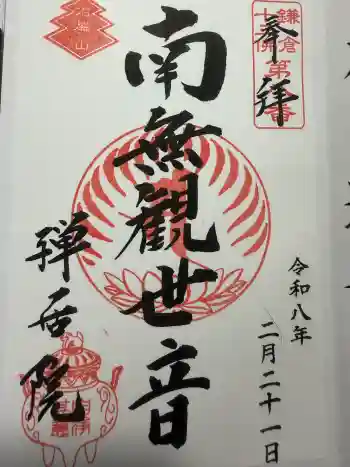 奉拝
鎌倉
十三佛
第八番
南無觀世音
令和八年
二月二十一日
禅居院